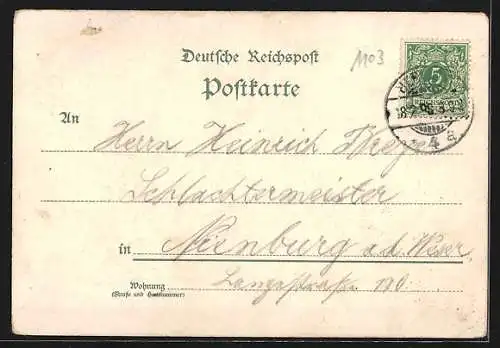 Deutsche Reichspost
1103
Postkarte
5
REICHSPOST
An
Herrn Heinrich
Schlachtermeister
in Nienburg a.d. Weser
Wohnung
(Straße und Hausnummer)
Langestraße 100